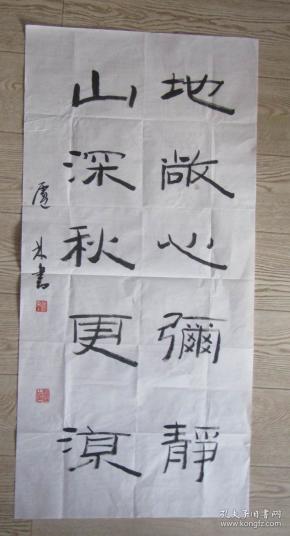 地敞心彌靜
山深秋更涼
書
孔夫子旧书网
www.kongfz.com